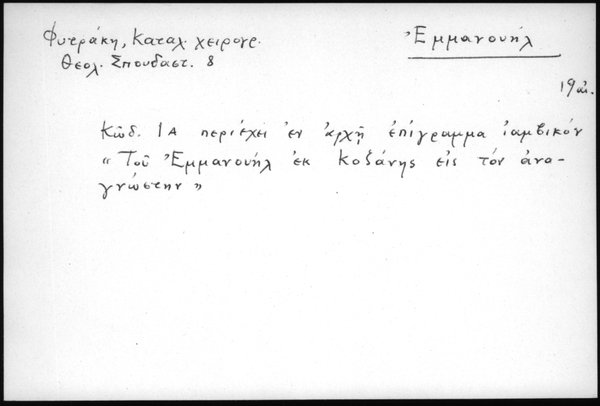 Φυτράκη, Καταλ. χειρογρ.
Θεολ. Σπουδαστ. 8
Ἐμμανουήλ
19 αἰ.
Κῶδ. 1Α περιέχει ἐν ἀρχῇ ἐπίγραμμα ἰαμβικόν
« Τοῦ Ἐμμανουήλ ἐκ Κοζάνης εἰς τόν ἀνα-
γνώστην »